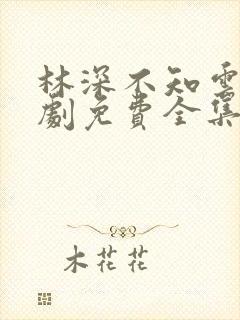 林深不知雲
劇免費全集
木花花